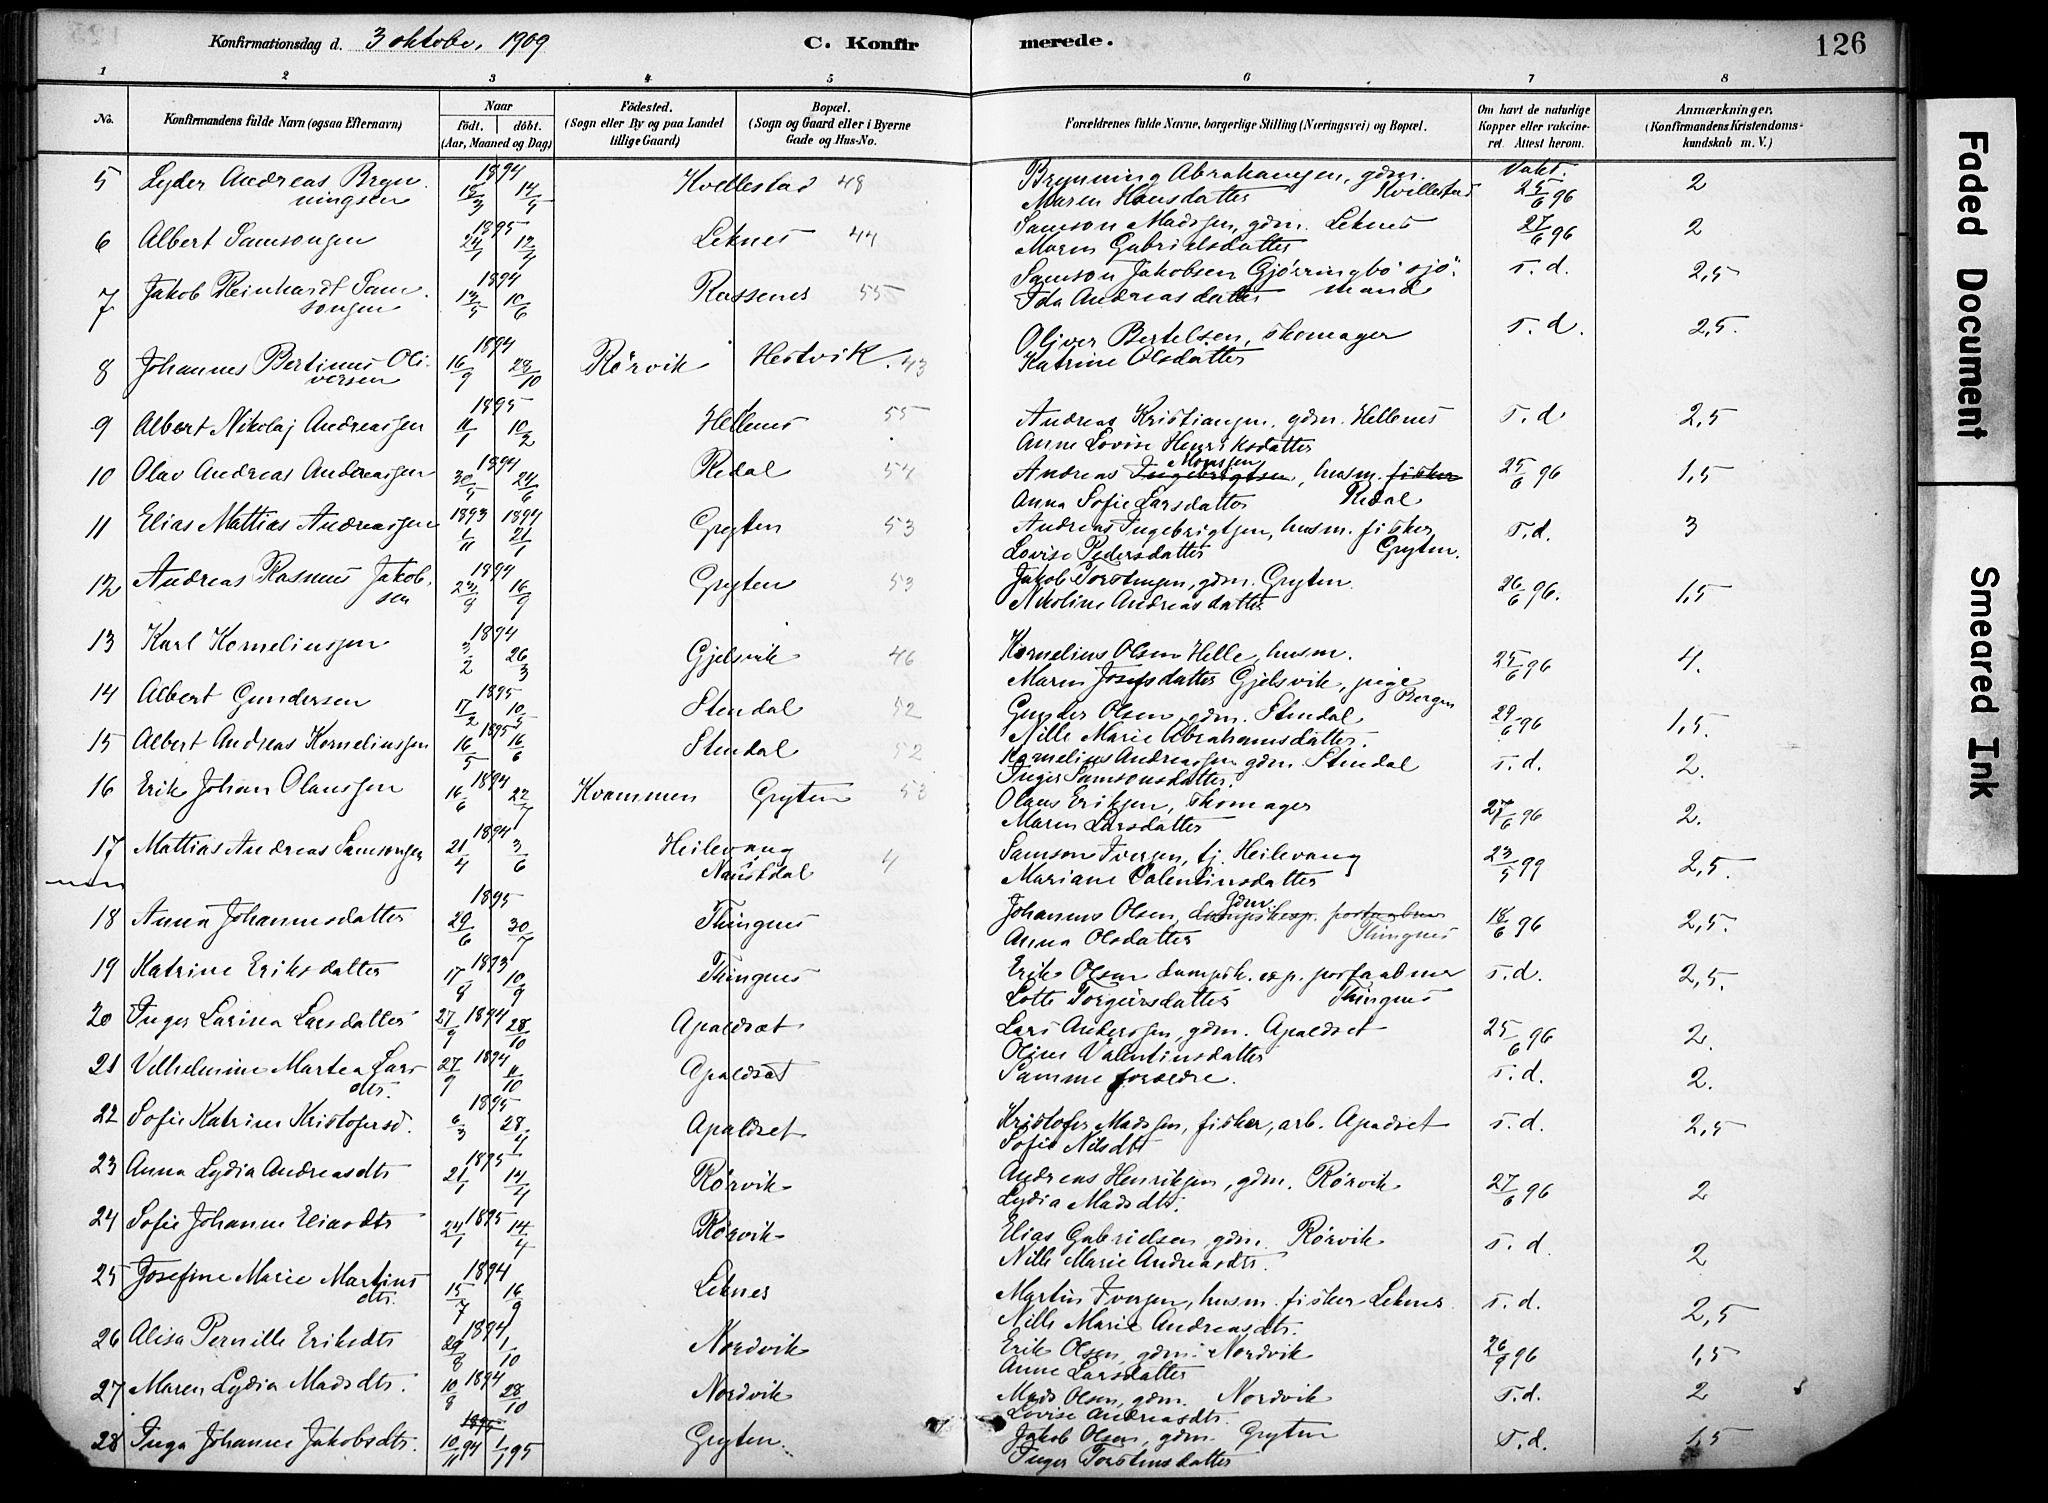 Konfirmationsdag d. 3 oktobe, 1909 C. Konfir merede. 126
1 2 3 4 5 6 7 8
No. Konfirmandens fulde Navn (ogsaa Efternavn) Naar födt. döbt. (Aar, Maaned og Dag) Födested. (Sogn eller By og paa Landet tillige Gaard) Bopæl. (Sogn og Gaard eller i Byerne Gade og Hus-No. Forældrenes fulde Navne, borgerlige Stilling (Næringsvei) og Bopæl. Om havt de naturlige Kopper eller vakcineret. Attest herom. Anmærkninger, (Konfirmandens Kristendomskundskab m. V.)
5 Lyder Andreas Bryn- 1894 Kvellestad 48 Brynning Abrahamsen, gdm. Vakt.
ningsen 18/3 14/5 Maren Hansdatter Kvellestad 25/6 96 2
6 Albert Samsonsen 1895 24/1 Leknes 44 Samson Madssen, gdm. Leknes 27/6 96 2
Maren Gabrielsdatter
7 Jakob Reinhardt Sam- 1894 Russenes 55 Samson Jakobsen Gjörringbö sjö- s. d. 2,5
songen 13/5 10/6 Ida Andreasdatter mand
8 Johannes Bertinus Oli- 1894 16/9 28/10 Rörvik Hestvik. 43 Oliver Bertelsen, skomager s. d. 2,5.
versen Katrine Olsdatter
9 Albert Nikolaj Andreassen 1895 11/1 10/2 Hellenes 55 Andreas Kristiansen, gdm. Hellenes s. d 2,5
Anne Lovise Henriksdatter
10 Olav Andreas Andreassen 1894 30/5 24/6 Redal 54 Andreas Ingebrigtsen Monssen, husm. fisker 25/6 96 1,5
Anna Sofie Larsdatter Redal
11 Elias Mattias Andreassen 1893 1894 21/1 Gryten 53 Andreas Ingebrigtsen, husm. fisker s. d. 3
Lovise Pedersdatter Gryten.
12 Andreas Rasmus Jakob- 1894 16/9 Gryten 53 Jakob Torstensen, gdm. Gryten. 26/6 96. 1,5
sen Nikoline Andreasdatter
13 Karl Korneliussen 1894 3/2 26/3 Gjelsvik 46 Kornelius Olsen Helle, husm. 25/6 96 4.
Maren Josefsdatter Gjelsvik, pige Bergen
14 Albert Gundersen 1895 17/2 10/5 Stendal 52 Gunder Olsen, gdm. Stendal 29/6 96 1,5.
Nille Marie Abrahamsdatter.
15 Albert Andreas Korneliussen 1895 16/5 16/6 Stendal 52 Kornelius Andreassen gdm. Stendal s. d. 2.
Inger Samsonsdatter.
16 Erik Johan Olaussen 1894 16/6 22/7 Kvammen Gryten 53 Olaus Eriksen, skomager 27/6 96 2.
Maren Larsdatter
17 Mattias Andreas Samsonsen 1894 21/4 3/6 Heilevang 4 Samson Iversen, tj. Heilevang 23/5 99 2,5.
Naustdal Mariane Valentinsdatter
18 Anna Johannesdatter 1895 29/6 30/7 Thingnes Johannes Olsen, gdm. dampskexp. postaabner 18/6 96 2,5.
Anna Olsdatter Thingnes
19 Katrine Eriksdatter 1893 17/8 10/9 Thingnes Erik Olsen dampsk. exp. postaabner s. d. 2,5.
Lotte Torgersdatter Thingnes
20 Inger Larina Larsdatter 27/9 1894 28/10 Apaldset Lars Anderssen, gdm. Apaldset 25/6 96 2.
Oline Valentinsdatter
21 Vilhelmine Martea Lars 27/9 1894 11/10 Apaldset Samme forældre. s. d. 2.
dtr.
22 Sofie Katrine Kristofersd. 1895 6/3 28/4 Apaldset Kristofer Madssen, fisker, arb. Apaldset s. d. 2,5
Sofie Nilsdtr
23 Anna Lydia Andreasdtr 1895 21/1 14/4 Rörvik Andreas Henriksen, gdm. Rörvik 27/6 96 2
Lydia Madsdtr.
24 Sofie Johanne Eliasdtr 1895 24/1 14/4 Rörvik Elias Gabrielsen, gdm. Rörvik s. d. 2
Nille Marie Andreasdtr.
25 Josefine Marie Martins 1894 15/7 16/9 Leknes Martin Iversen, husm. fisker Leknes s. d. 2,5
dtr. Nille Marie Andreasdtr.
26 Alisa Pernille Eriksdtr 1894 29/8 1/10 Nordvik Erik Olsen, gdm. Nordvik 26/9 96 1,5
Anne Larsdatter
27 Maren Lydia Madsdtr. 10/8 1894 28/10 Nordvik Mads Olsen, gdm. Nordvik s. d. 2
Lovise Andreasdtr.
28 Inga Johanne Jakobsdtr. 10/11 94 1/1 95 Gryten. Jakob Olsen, gdm. Gryten s. d. 1,5
Inger Torstensdatter
Faded Document
Smeared Ink